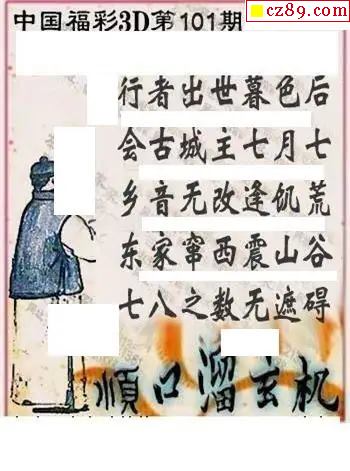 cz89.com
中国福彩3D第101期
行者出世暮色后
会古城主七月七
乡音无改逢饥荒
东家窜西震山谷
七八之数无遮碍
順口溜玄机